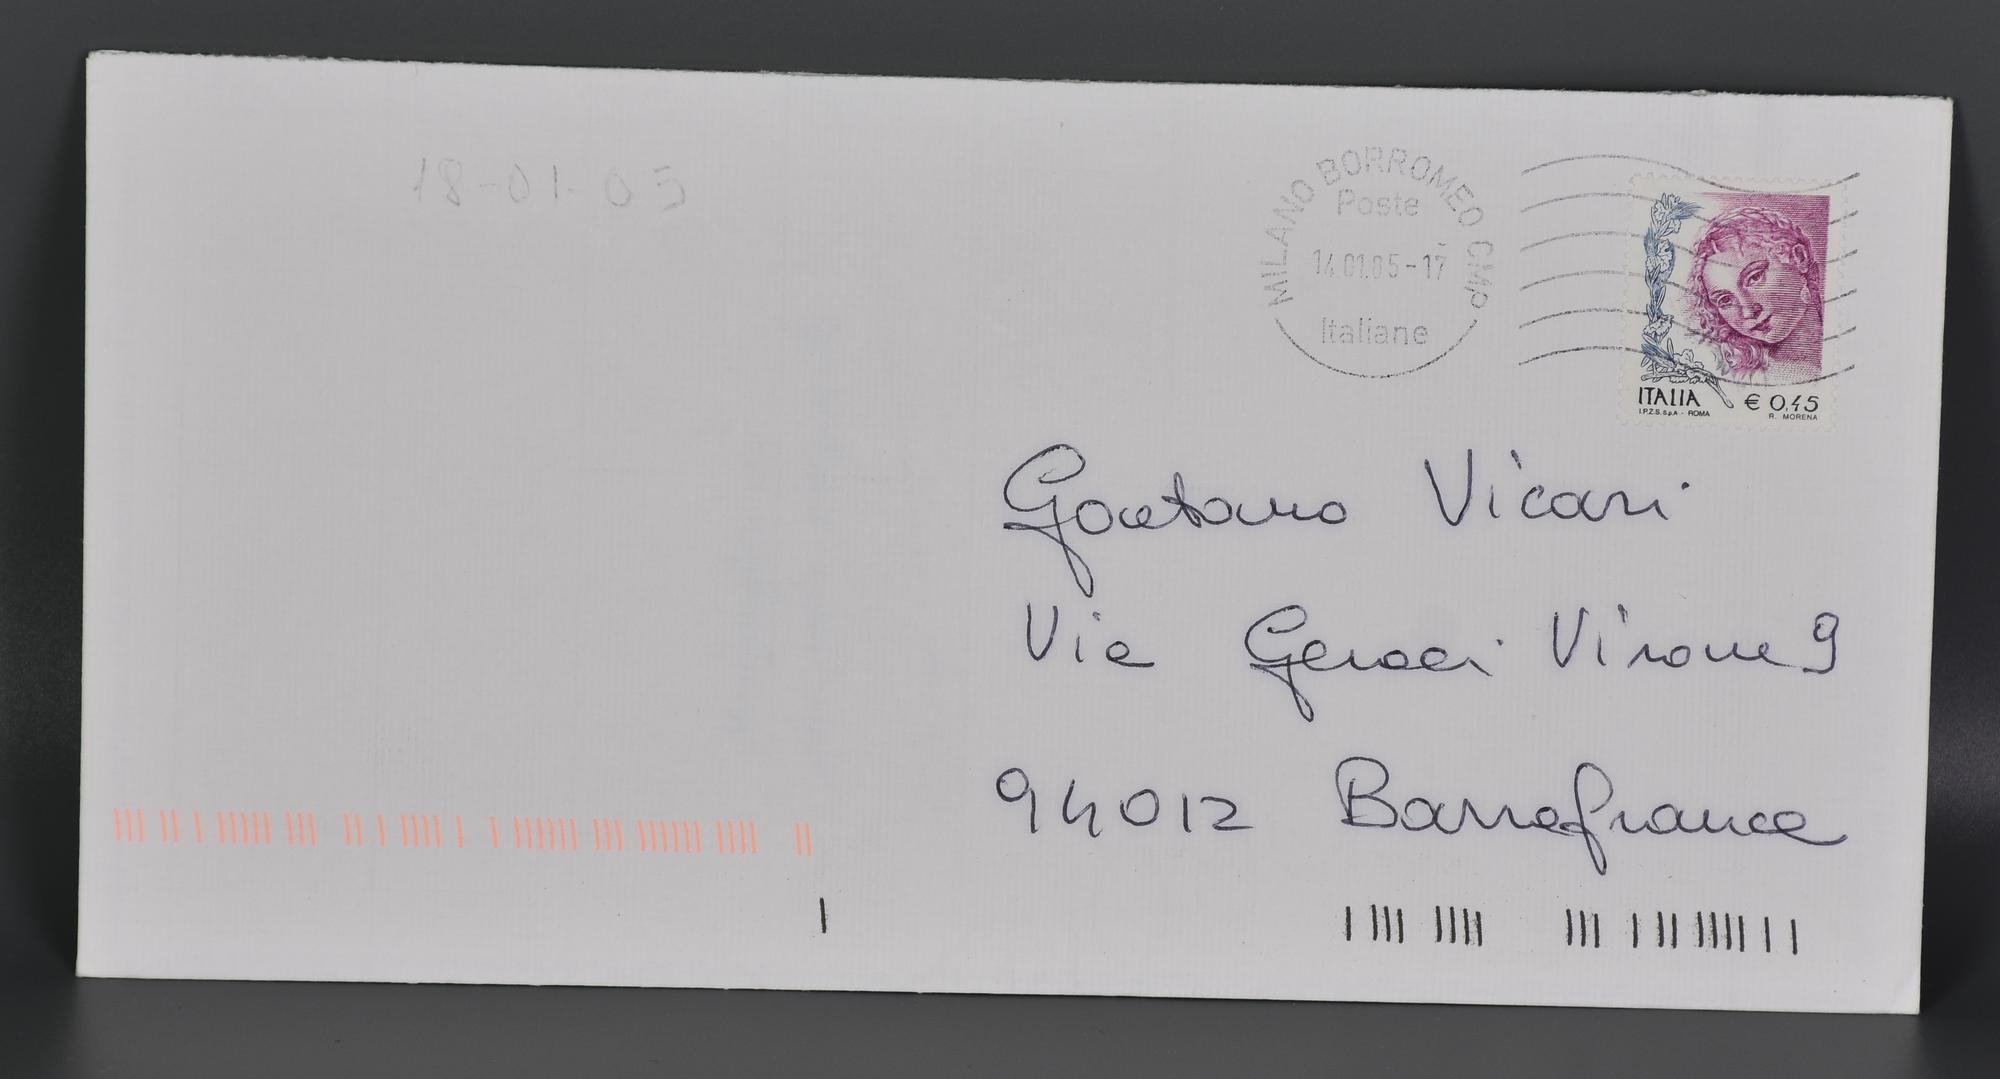 18-01-05
MILANO BORROMEO CMP
Poste
14.01.05-17
Italiane
ITALIA € 0,45
I.P.Z.S. S.p.A. - ROMA R. MORENA
Gaetano Vicari
Via Geraci Virone 9
94012 Barrafranca